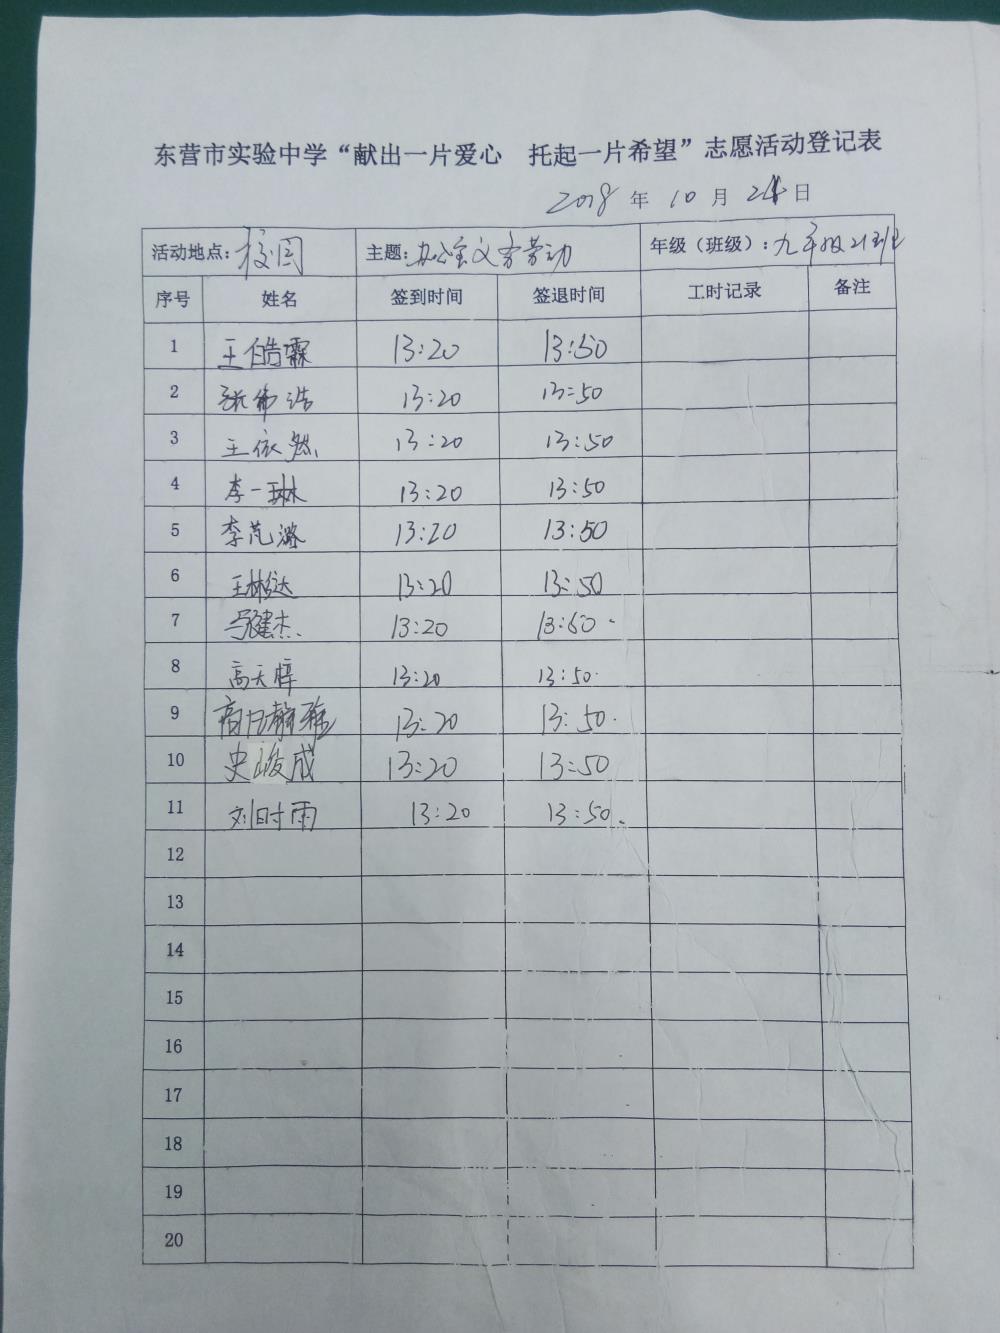 东营市实验中学“献出一片爱心 托起一片希望”志愿活动登记表
2018 年 10 月 24 日
活动地点：校园 主题：办公室义务劳动 年级（班级）：九年级21班
序号 姓名 签到时间 签退时间 工时记录 备注
1 王皓霖 13:20 13:50
2 张伟浩 13:20 13:50
3 王依然 13:20 13:50
4 李一琳 13:20 13:50
5 李芃潞 13:20 13:50
6 王彬达 13:20 13:50
7 马健杰 13:20 13:50
8 高天梓 13:20 13:50
9 13:20 13:50
10 史峻成 13:20 13:50
11 刘时雨 13:20 13:50
12
13
14
15
16
17
18
19
20